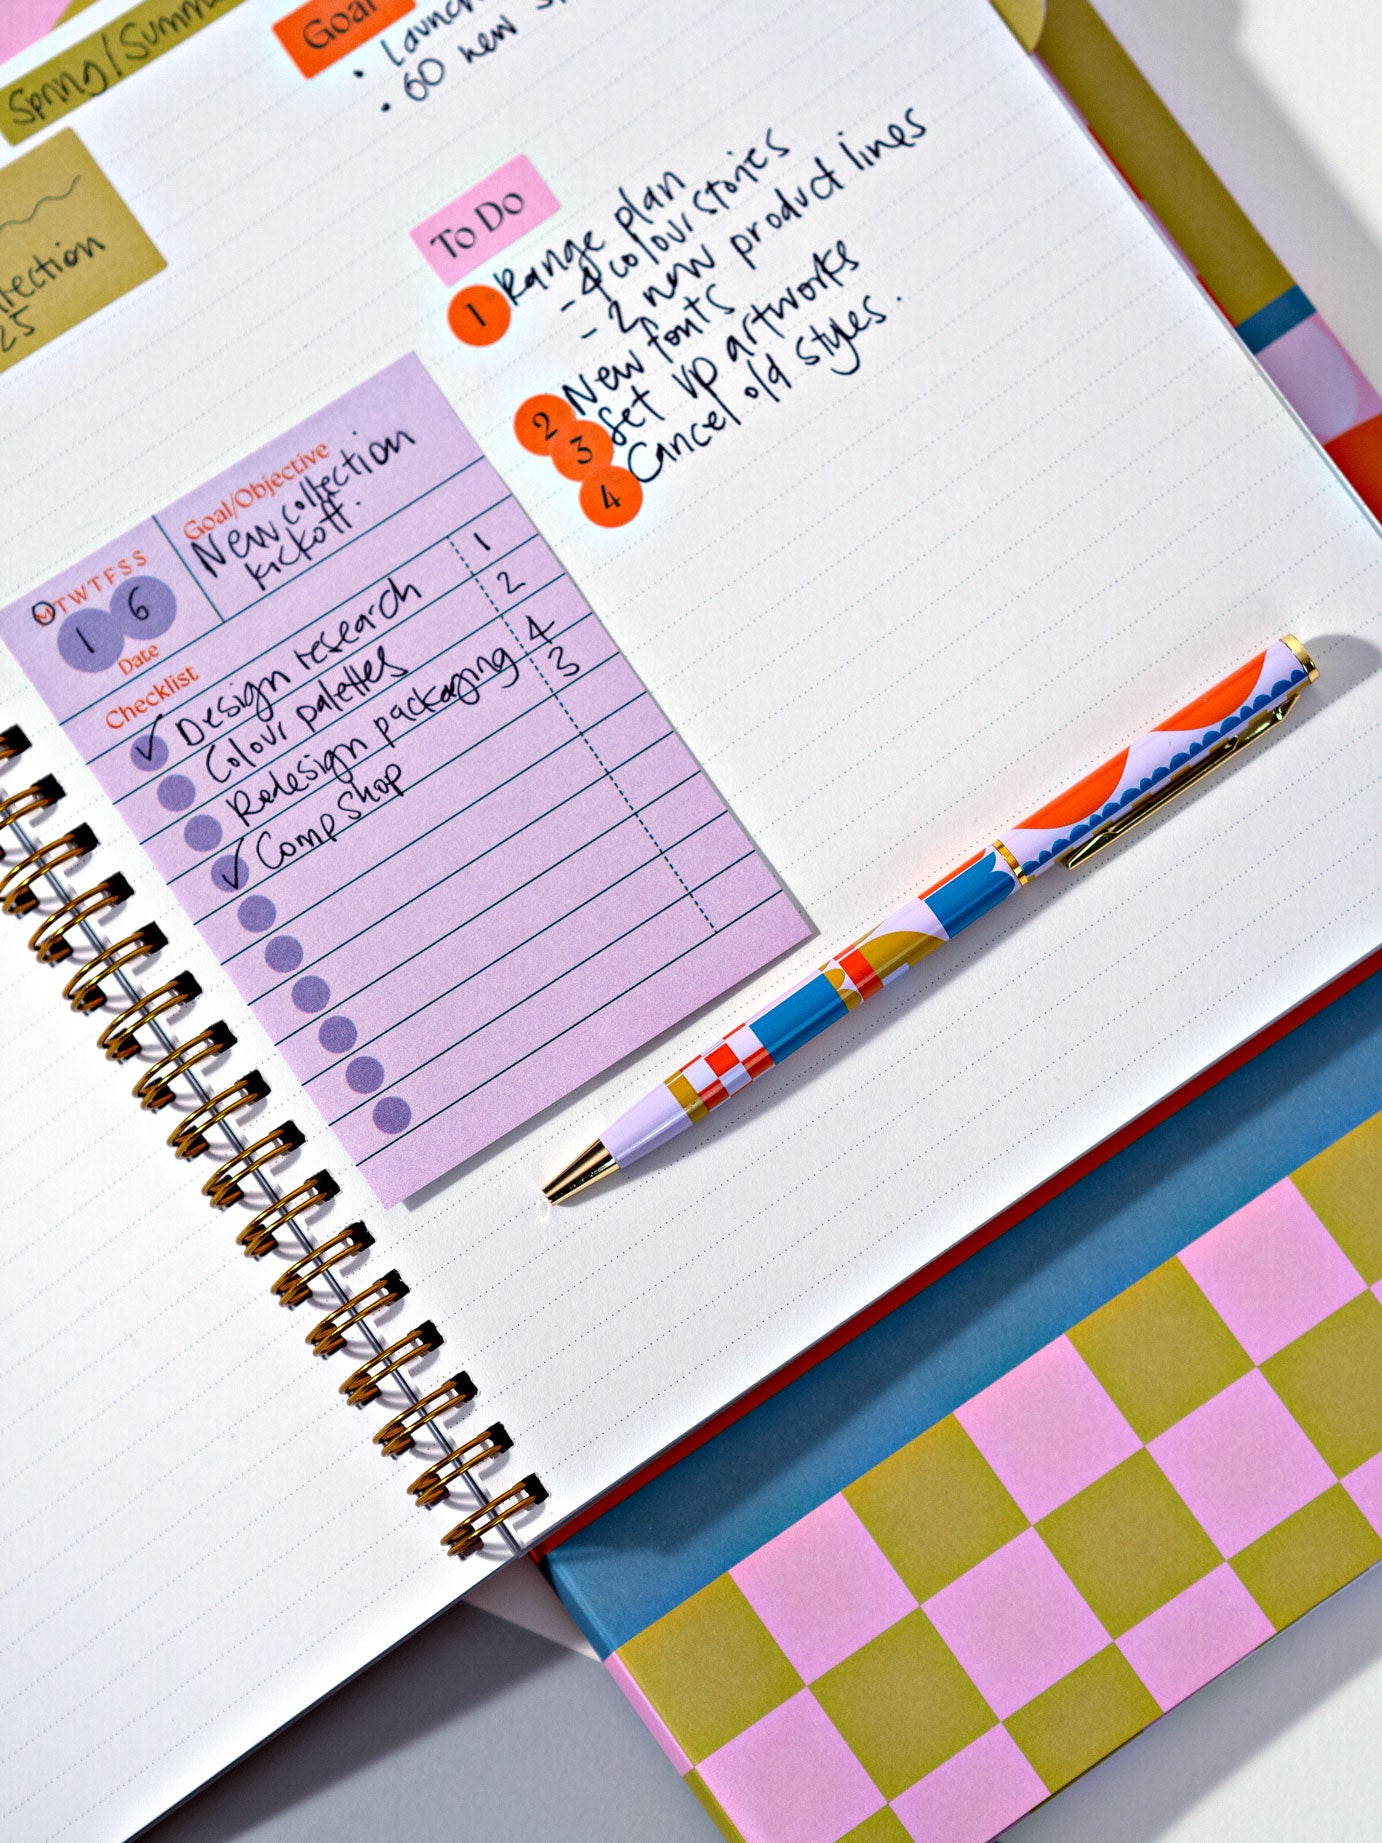 Spring/Summ
Goal
• Launch
• 60 new
lection
25
To Do
1 Range plan
- 4 colour stories
- 2 new product lines
2 New fonts
3 Set up artworks
4 Cancel old styles.
MTWTFSS
1 6
Date
Goal/Objective
New collection
kickoff.
Checklist
✓ Design research 1
Colour palettes 2
Redesign packaging 4
✓ Comp shop 3